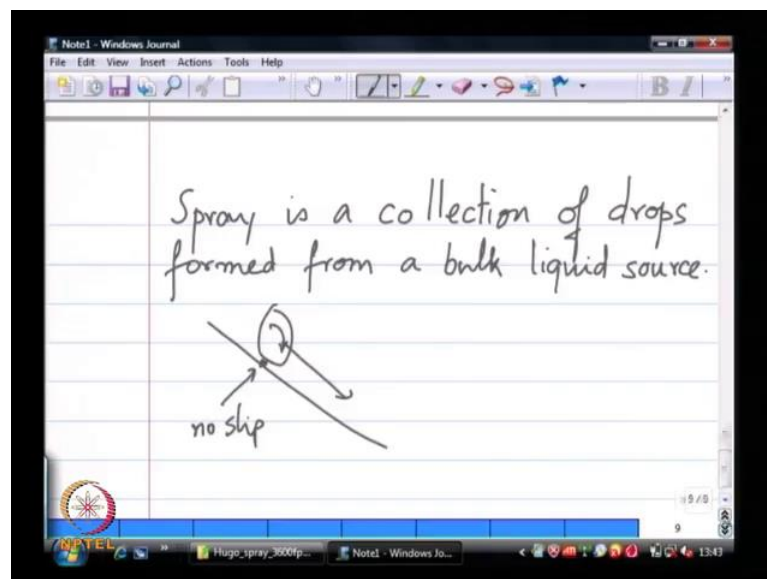 Note1 - Windows Journal
File Edit View Insert Actions Tools Help
B I
Spray is a collection of drops
formed from a bulk liquid source.
no slip
9/9
9
NPTEL
Hugo_spray_3600fp...
Note1 - Windows Jo...
13:43